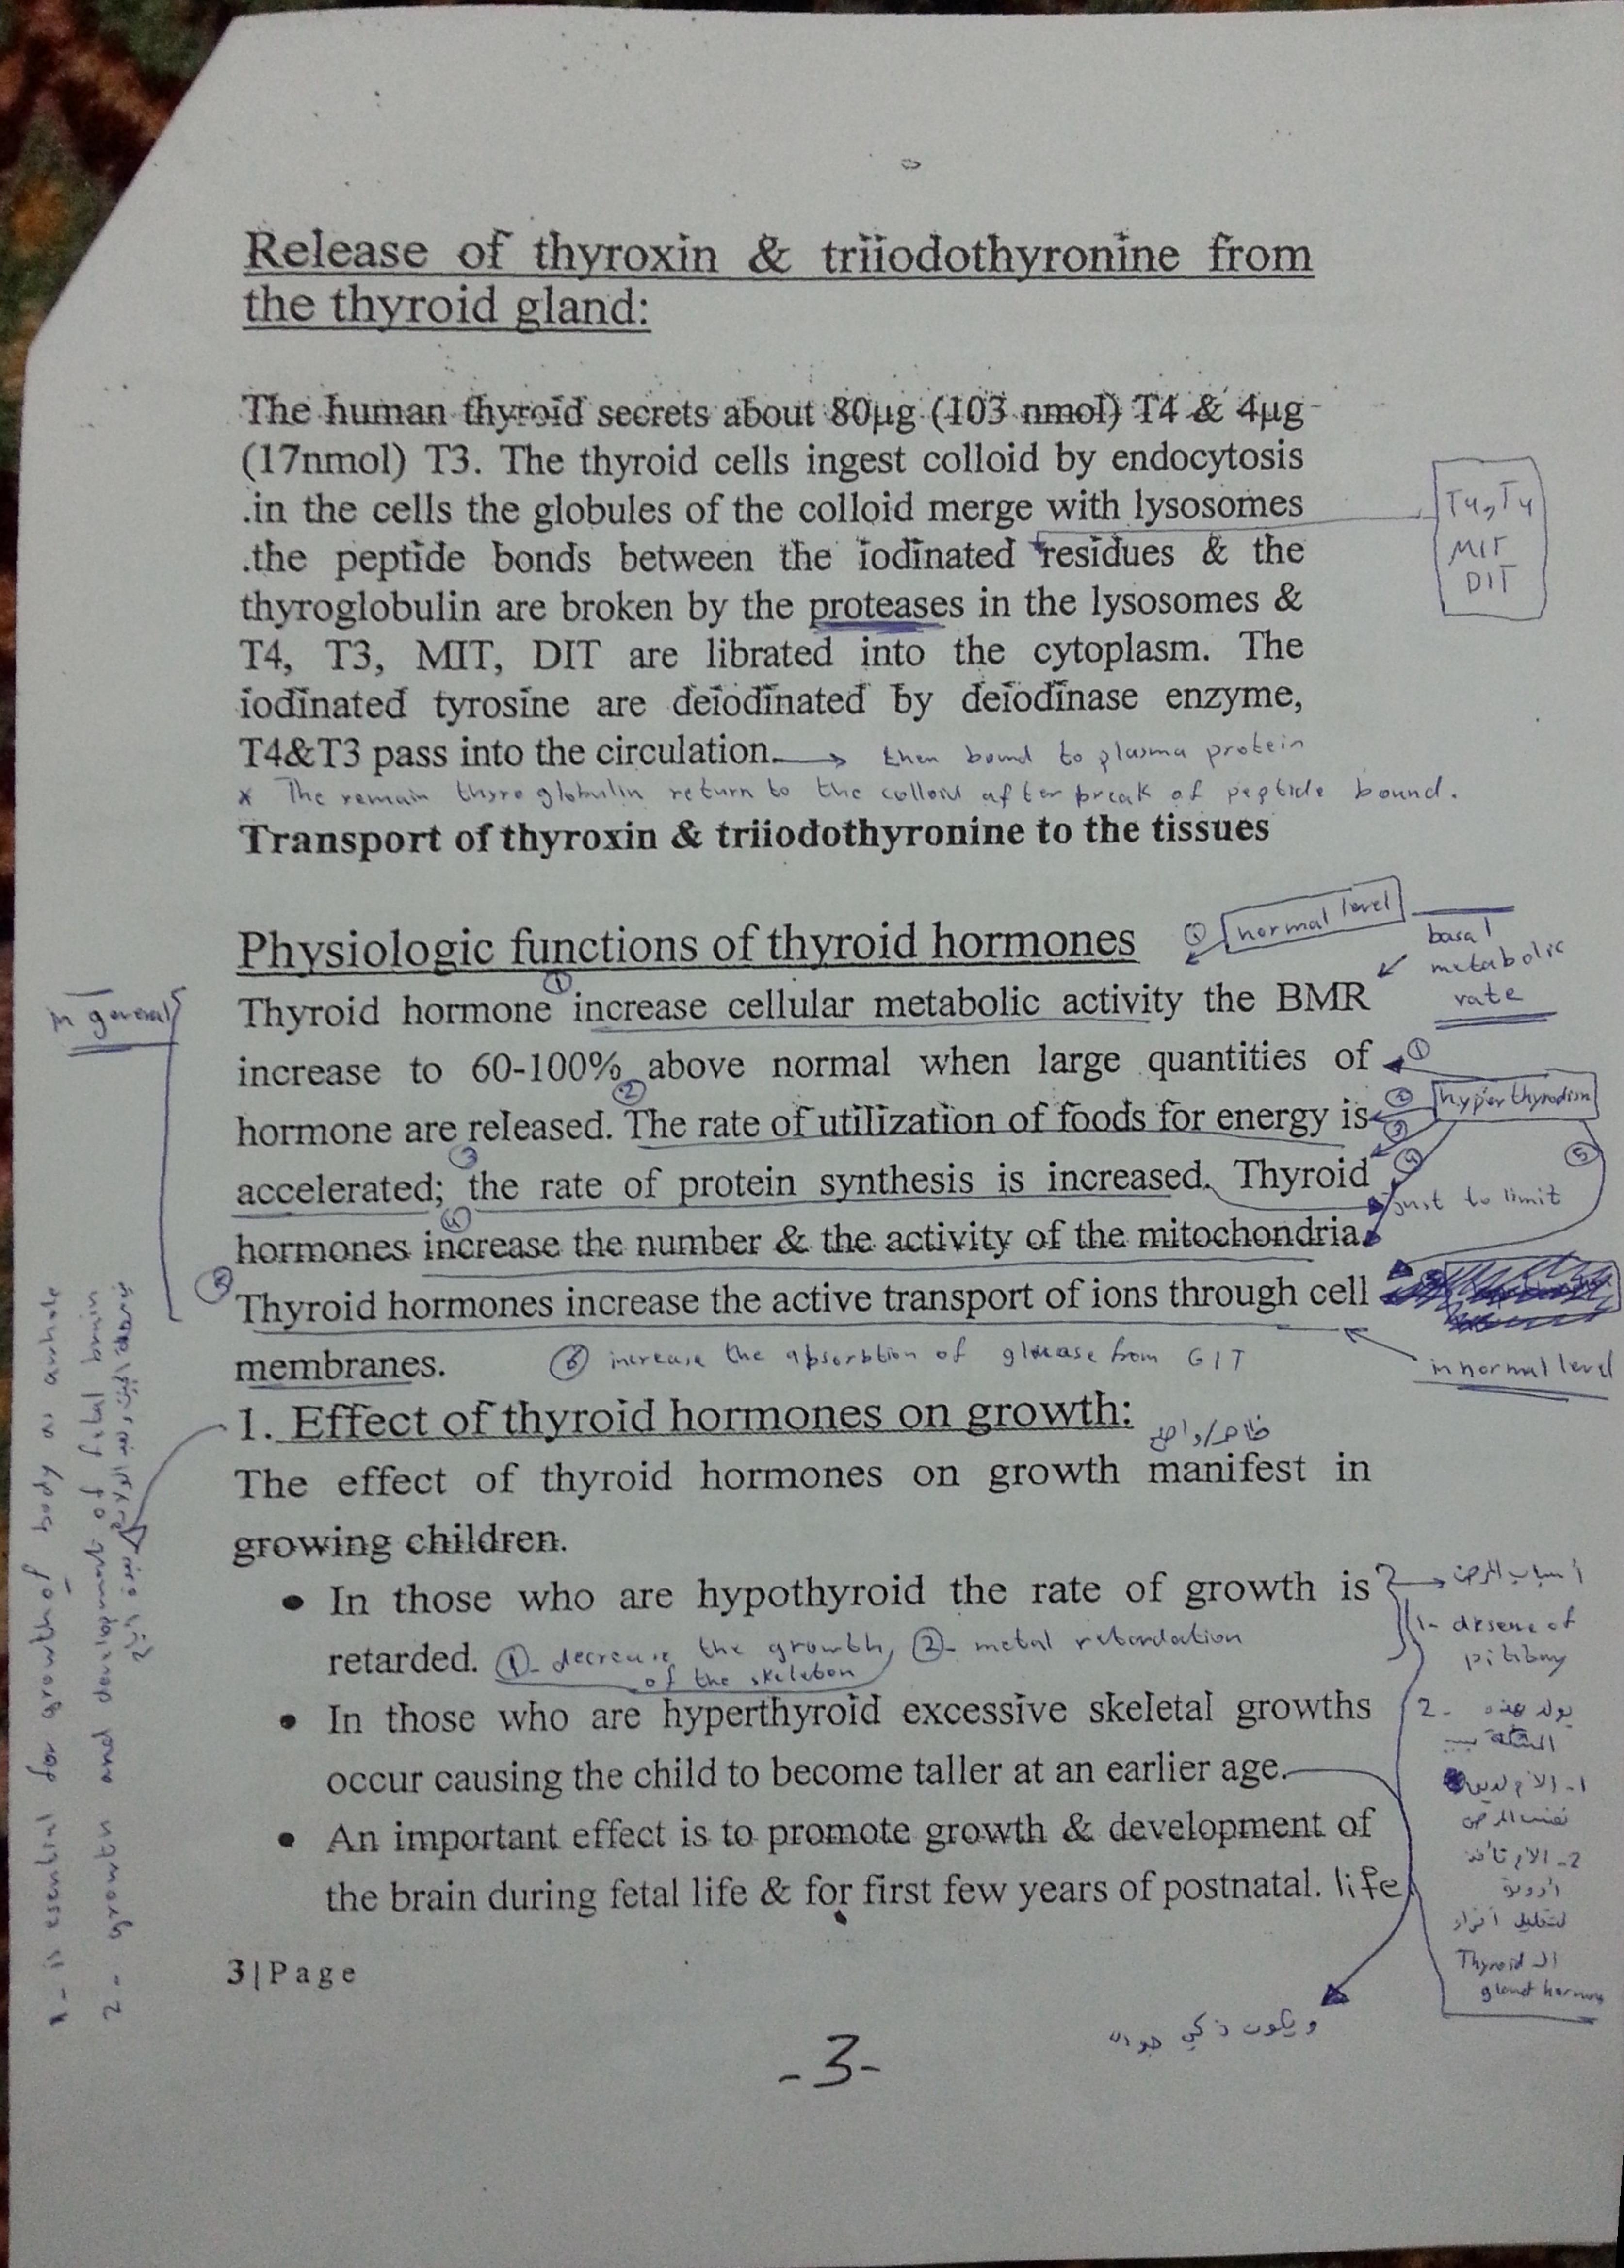 Release of thyroxin & triiodothyronine from
the thyroid gland:
The human thyroid secrets about 80µg (103 nmol) T4 & 4µg
(17nmol) T3. The thyroid cells ingest colloid by endocytosis
.in the cells the globules of the colloid merge with lysosomes
.the peptide bonds between the iodinated residues & the
thyroglobulin are broken by the proteases in the lysosomes &
T4, T3, MIT, DIT are librated into the cytoplasm. The
iodinated tyrosine are deiodinated by deiodinase enzyme,
T4&T3 pass into the circulation. → then bound to plasma protein
T4, T4
MIT
DIT
* The remain thyroglobulin return to the colloid after break of peptide bound.
Transport of thyroxin & triiodothyronine to the tissues
Physiologic functions of thyroid hormones
① normal level
basal
metabolic
rate
in general
Thyroid hormone ① increase cellular metabolic activity the BMR
increase to 60-100% above normal when large quantities of ①
hormone are released. ② The rate of utilization of foods for energy is ② ③
hyperthyrodism
accelerated; ③ the rate of protein synthesis is increased. Thyroid ④ ⑤
just to limit
hormones ④ increase the number & the activity of the mitochondria.
Thyroid hormones increase the active transport of ions through cell
membranes. ⑥ increase the absorbtion of glucase from GIT
in normal level
1. Effect of thyroid hormones on growth:
ظاهر/واضح
The effect of thyroid hormones on growth manifest in
growing children.
• In those who are hypothyroid the rate of growth is
retarded. ①- decrease the growth, ②- metal retardation
of the skeleton
• In those who are hyperthyroid excessive skeletal growths
occur causing the child to become taller at an earlier age.
• An important effect is to promote growth & development of
the brain during fetal life & for first few years of postnatal. life
أسباب المرض
1- of
2- يولد بهذه
المشكلة
1- الأم
نفس المرض
2- الأم تأخذ
أدوية
لتقليل افراز
الـ Thyroid
gland hormon
ويكون ذكي جداً
1- is esential for growth of body as awhole
2- growth and development of fetal brain
3|Page
-3-